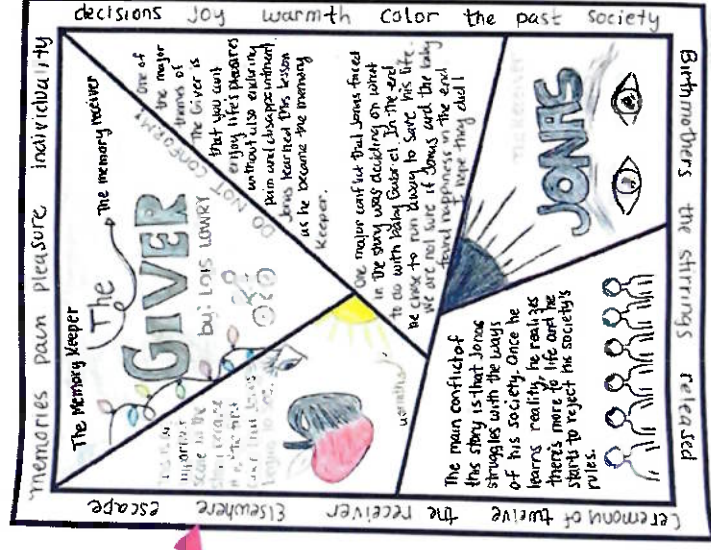 decisions joy warmth color the past society
Birthmothers the stirrings released
Ceremony of twelve the receiver Elsewhere escape
memories pain pleasure individuality
The Memory Keeper
The memory receiver
The
GIVER
by: LOIS LOWRY
DO NOT CONFORM!
One of
the major
themes of
The Giver is
that you can't
enjoy life's pleasures
without also enduring
pain and disappointment.
Jonas learned this lesson
as he became the memory
keeper.
One major conflict that Jonas faced
in the story was deciding on what
to do with baby Gabriel. In the end
he chose to run away to save his life.
We are not sure if Jonas and the baby
found happiness in the end
I hope they did!
THE RECEIVER
JONAS
important
scene in the
The main conflict of
this story is that Jonas
struggles with the ways
of his society. Once he
learns reality, he realizes
there's more to life and he
starts to reject his society's
rules.